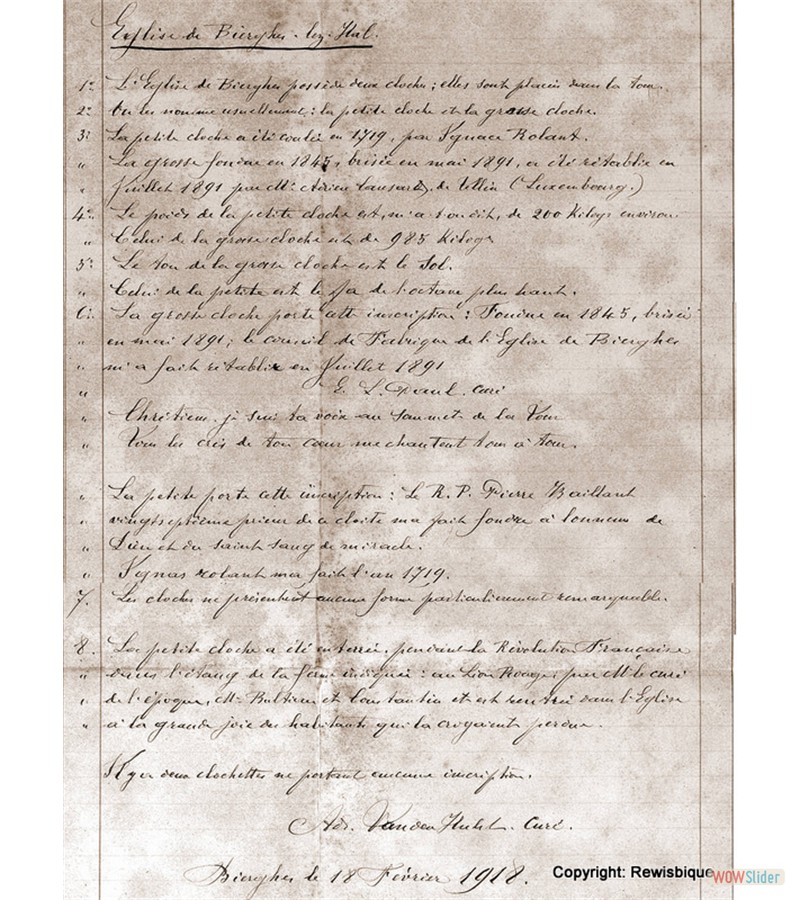 Eglise de Bierghes-lez-Hal.
1° L'Eglise de Bierghes possède deux cloches ; elles sont placées dans la tour.
2° On les nomme usuellement : la petite cloche et la grosse cloche.
3° La petite cloche a été coulée en 1719, par Ignace Rolant.
" La grosse fondue en 1845, brisée en mai 1891, a été rétablie en
" Juillet 1891 par Mr Adrien Causard, de Tellin (Luxembourg.)
4° Le poids de la petite cloche est, m'a-t-on dit, de 200 Kilogs environ
" Celui de la grosse cloche est de 985 Kilogs
5° Le ton de la grosse cloche est le Sol.
" Celui de la petite est le fa de l'octave plus haut.
6° La grosse cloche porte cette inscription : Fondue en 1845, brisée
" en mai 1891 ; le conseil de Fabrique de l'Eglise de Bierghes
" m'a fait rétablir en Juillet 1891
" E. L. Paul. curé
" Chrétiens, je suis ta voix au sommet de la Tour
" Tous les cris de ton cœur me chantent tour à tour.
" La petite porte cette inscription : Le R. P. Pierre Baillant
" vingtseptième prieur de a cloitre ma fait fondre à lonneur de
" Dieu et du saint sang de miracle.
" Ygnas rolant ma fait l'an 1719.
7. Les cloches ne présentent aucune forme particulièrement remarquable.
8. La petite cloche a été enterrée, pendant la Révolution Française
" dans l'étang de la ferme : au Lion Rouge, par Mr le curé
" de l'époque, Mr et Constantin et est rentrée dans l'Eglise
" à la grande joie des habitants qui la croyaient perdue.
Il y a deux clochettes ne portant aucune inscription.
Ad. Vanden Hulst. Curé.
Bierghes le 18 Février 1918.
Copyright: Rewisbique
WOWSlider